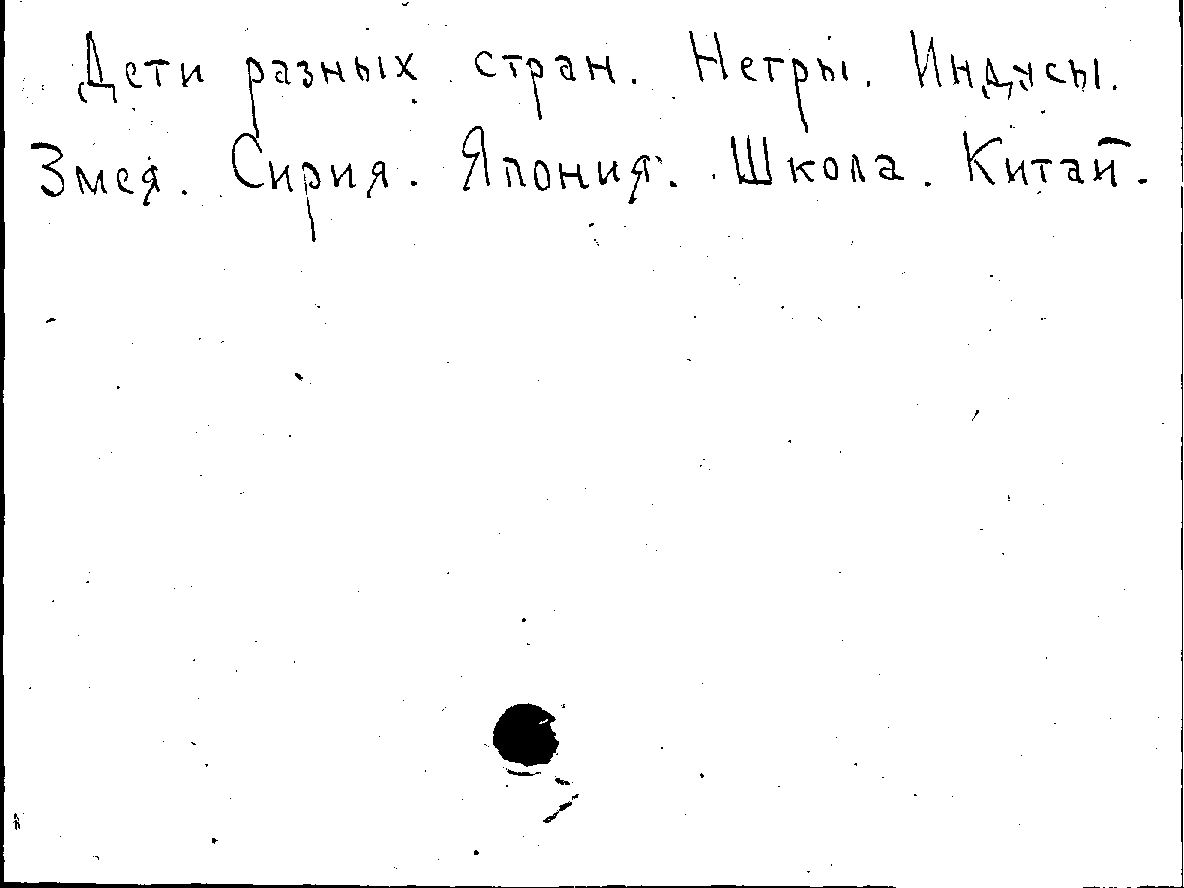 Дети разных стран. Негры. Индусы.
Змея. Сирия. Япония. Школа. Китай.